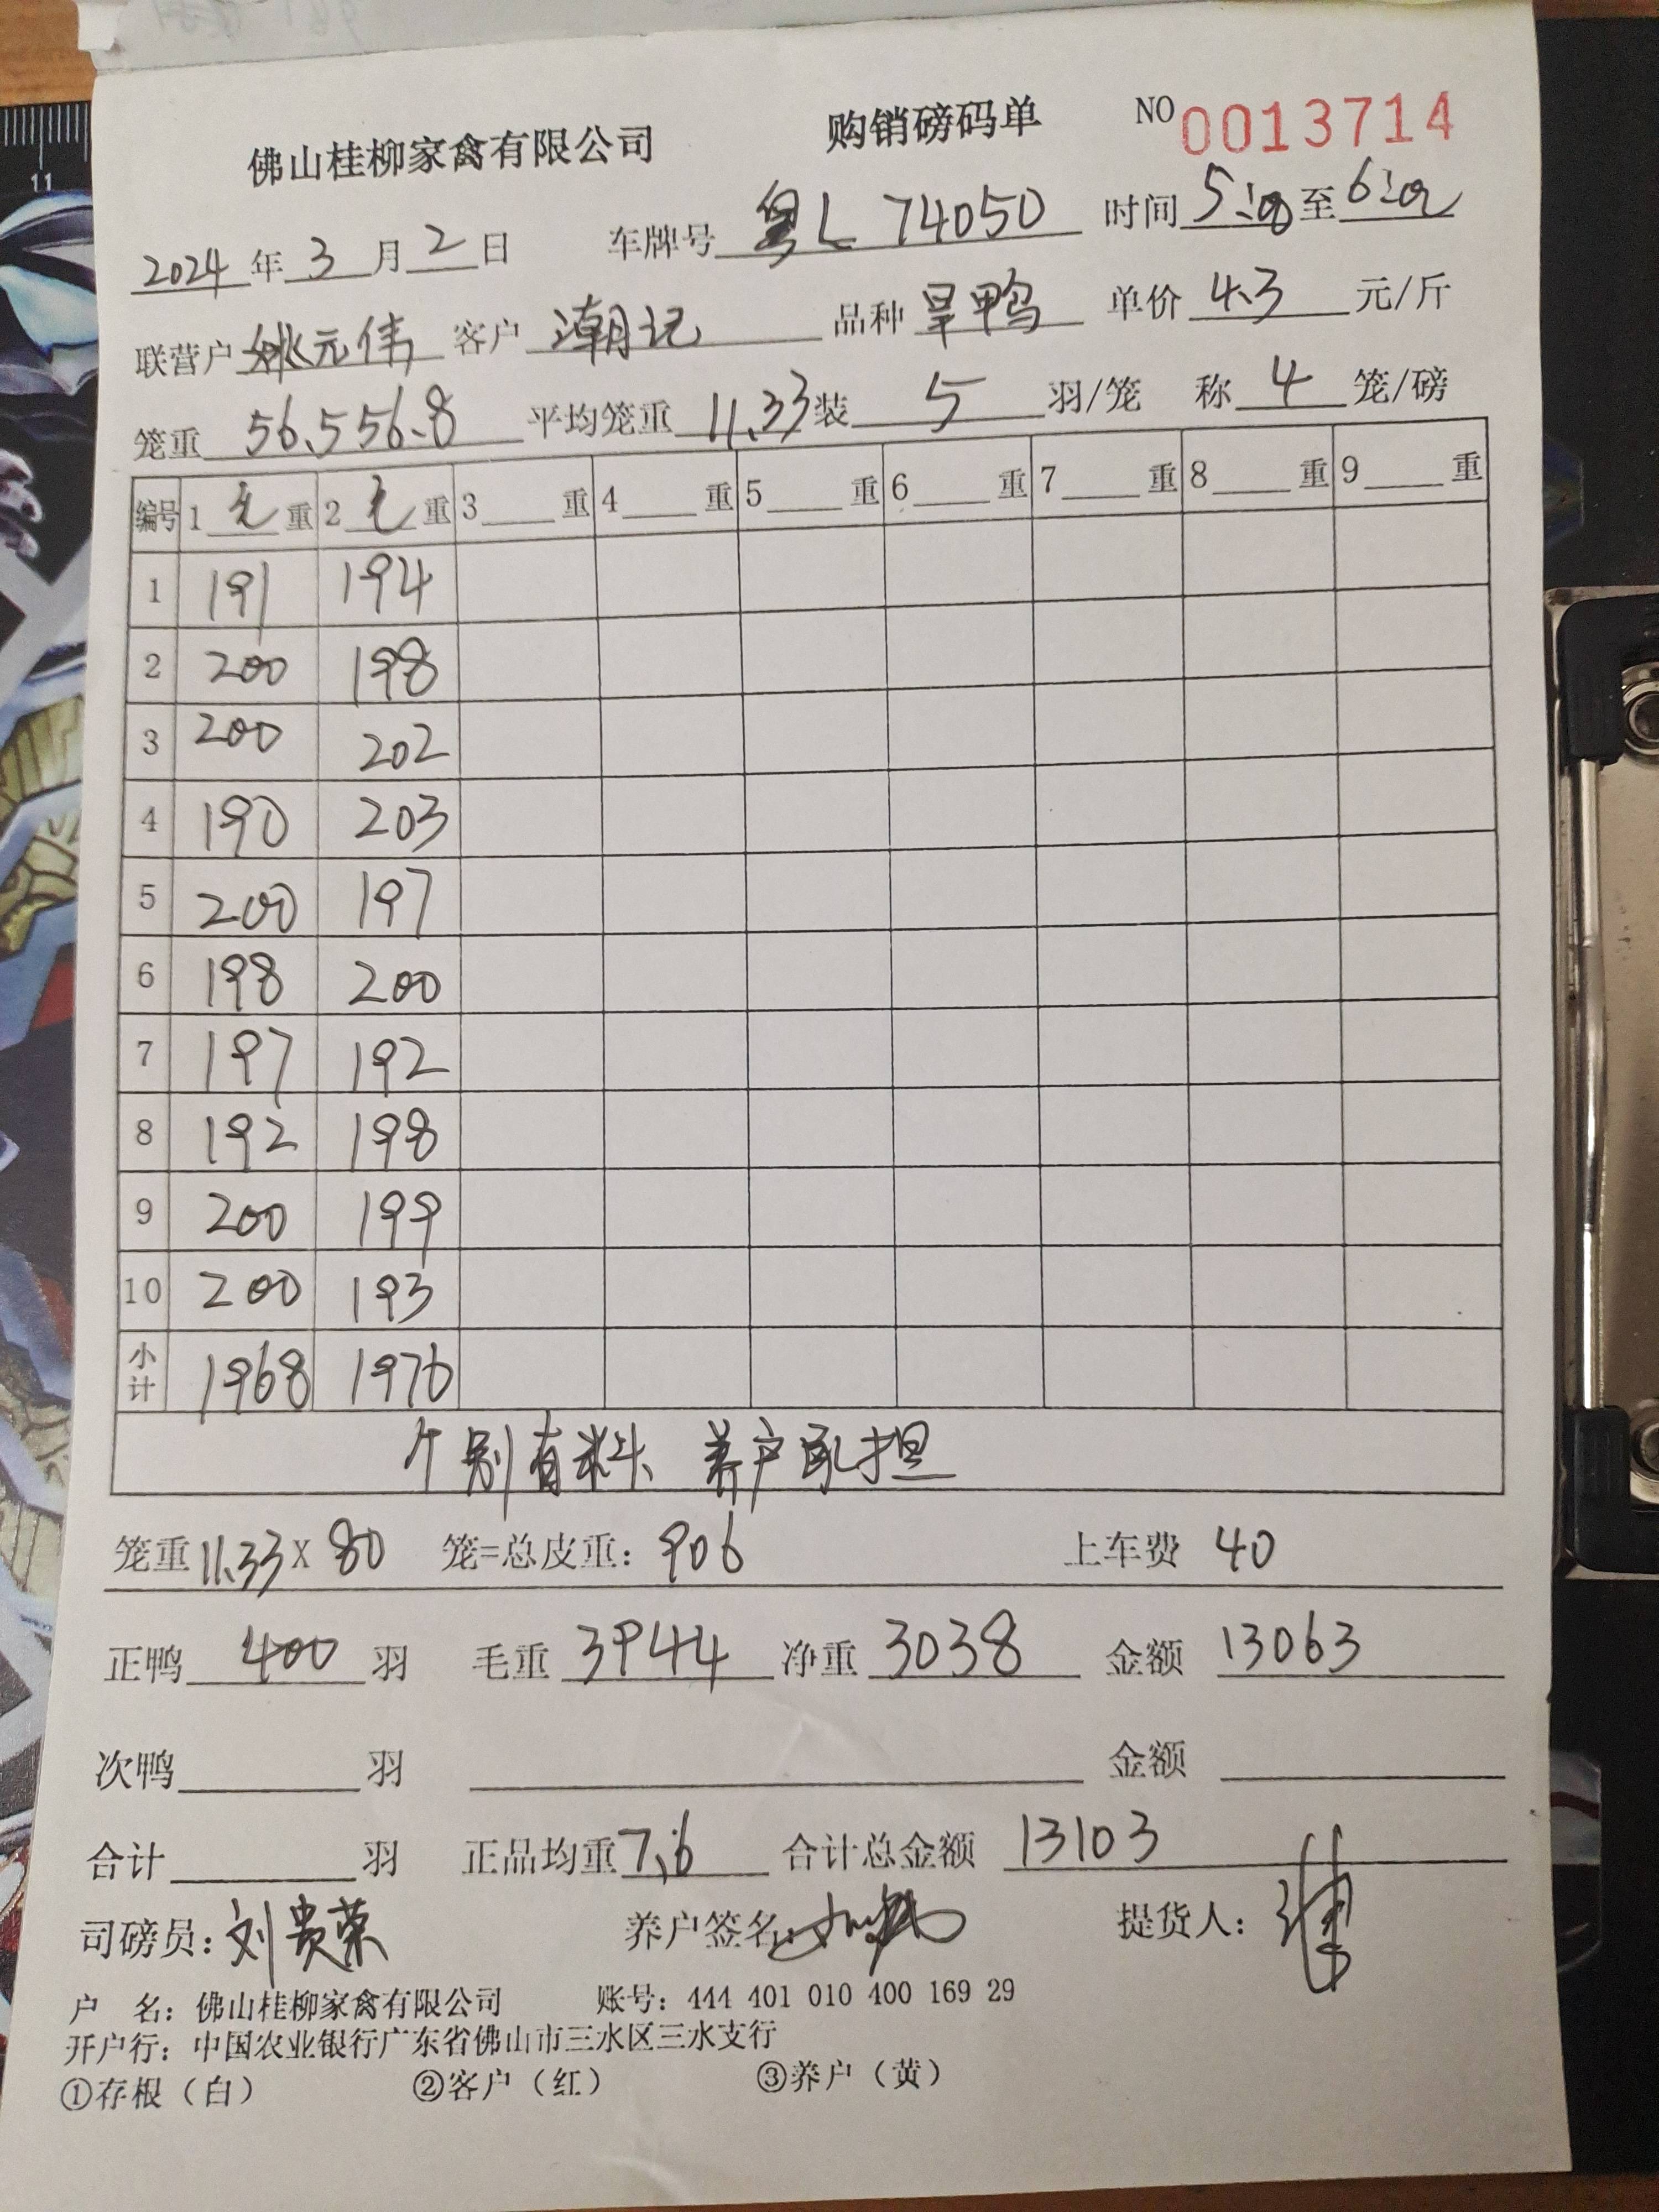 佛山桂柳家禽有限公司 购销磅码单 NO 0013714
2024年3月2日 车牌号 粤L 74050 时间 5:00至6:00
联营户 姚元伟 客户 潮记 品种 旱鸭 单价 4.3 元/斤
笼重 56.5 56.8 平均笼重 11.33 装 5 羽/笼 称 4 笼/磅
编号 1 毛 重 2 毛 重 3 重 4 重 5 重 6 重 7 重 8 重 9 重
1 191 194
2 200 198
3 200 202
4 190 203
5 200 197
6 198 200
7 197 192
8 192 198
9 200 199
10 200 193
小计 1968 1976
个别有料、养户承担
笼重 11.33 X 80 笼=总皮重: 906 上车费 40
正鸭 400 羽 毛重 3944 净重 3038 金额 13063
次鸭 羽 金额
合计 羽 正品均重 7.6 合计总金额 13103
司磅员: 刘贵荣 养户签名: 提货人:
户 名: 佛山桂柳家禽有限公司 账号: 444 401 010 400 169 29
开户行: 中国农业银行广东省佛山市三水区三水支行
①存根（白） ②客户（红） ③养户（黄）
11